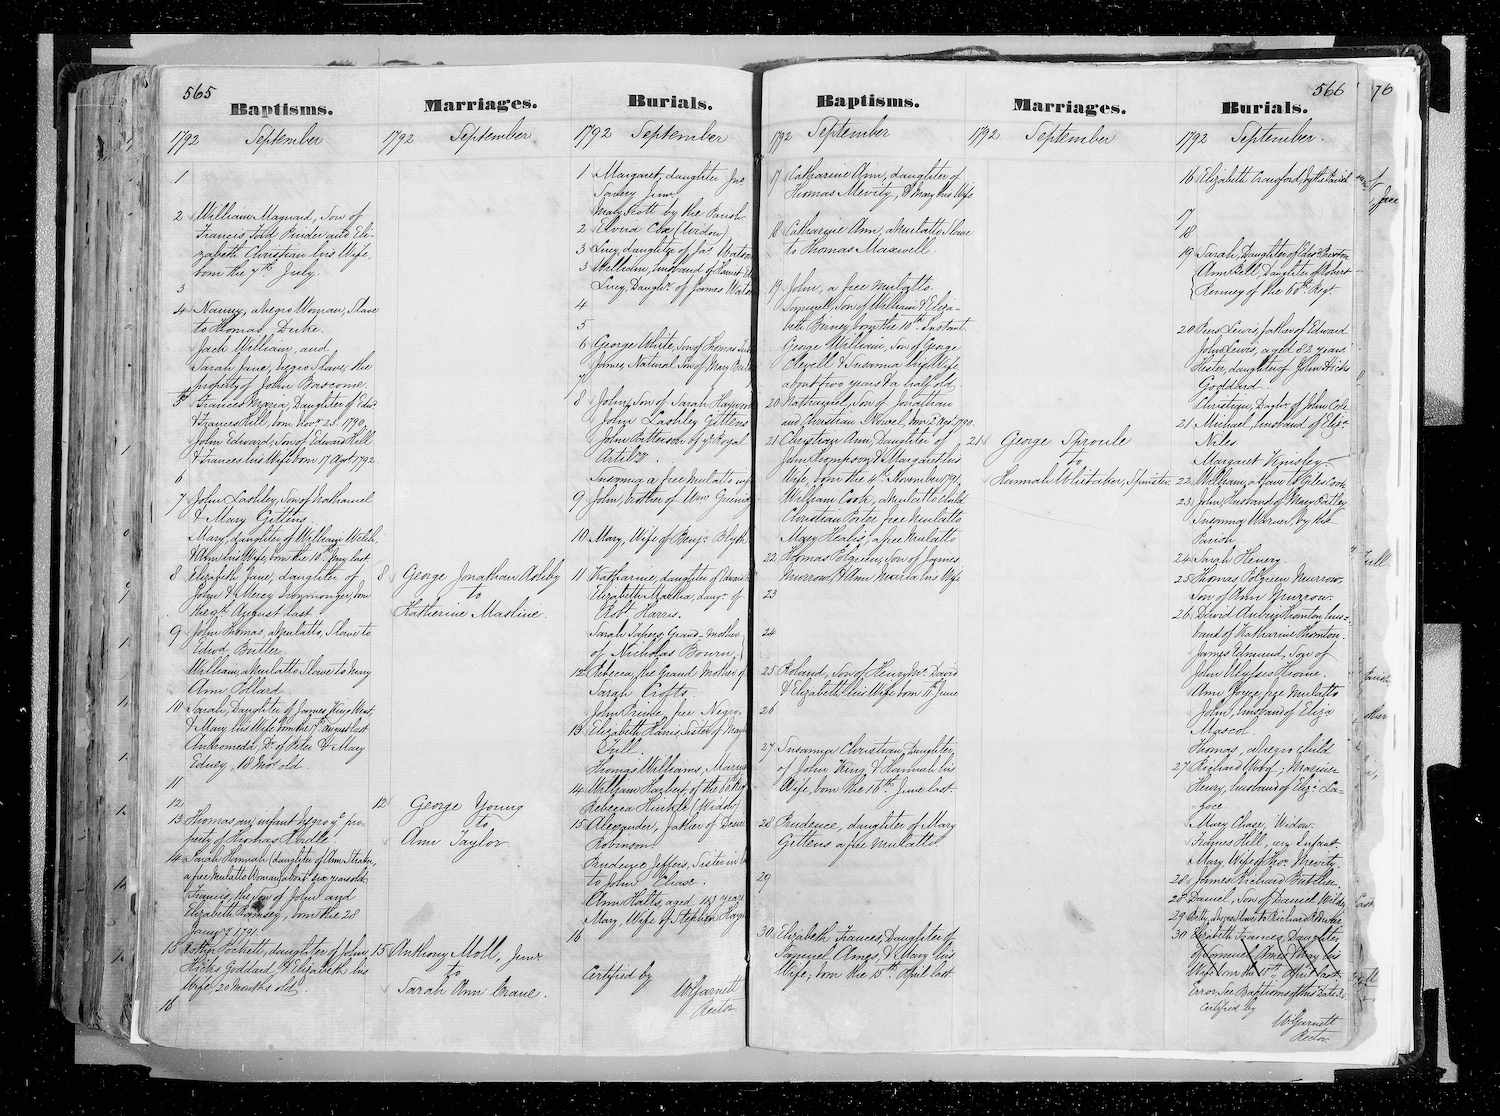 565
Baptisms.
1792 September
1
2 William Maynard, Son of
Francis Pinder and Eli-
zabeth Christian his Wife,
born the 7th July.
3
4 Nanny, a Negro Woman, Slave
to Thomas Duke.
Jack William, and
Sarah Jane, negro Slaves, the
property of John Bascome.
5 Frances Maria, Daughter of Edwd
& Frances Hill, born Novr 23. 1790,
John Edward, Son of Edward Hill
& Frances his Wife born 17 Augt 1792
6
7 John Lashley, Son of Nathaniel
& Mary Gittens.
Mary, daughter of William Welch
& Ann his Wife, born the 10th May last
8 Elizabeth Jane, daughter of
John & Mercy Ironmonger, born
the 9th August last.
9 John Thomas, a Mulatto, Slave to
Edwd Butler
William, a Mulatto Slave to Mary
Ann Pollard
10 Sarah, Daughter of James
& Mary his Wife born the 7th August last
Andromeda, Dr of Peter & Mary
Edney, 10 Mos old.
11
12
13 Thomas, an infant Negro ye pro-
perty of Thomas
14 Sarah Hannah (daughter of Ann Straton,
a free Mulatto Woman) about six years old.
Francis, the Son of John and
Elizabeth Ramsey, born the 28
Jany 1791.
15 Hackett, daughter of John
Hicks Goddard, & Elizabeth his
Wife 20 Months old.
16
Marriages.
1792 September
8 George Jonathan Ashby
to
Katherine Masline.
12 George Young
to
Ann Taylor
15 Anthony Moll, Junr
to
Sarah Ann Crane.
Burials.
1792 September
1 Margaret, daughter Jno
Junr
Mary Scott by the Parish
2 Elvira Cox (Widow)
3 Lucy, daughter of Jas Watson
3 William, husband of
Lucy, Daughr of James Watson
4
5
6 George White, Son of Thomas
James, Natural Son of Mary
7
8 John, Son of Sarah
John Lashley Gittens
John Patterson of ye Royal
Artily.
Susanna a free Mulatto
9 John, brother of
10 Mary, Wife of Benjn Blyth
11 Katharine, daughter of
Elizabeth Martha, daugr of
Robt Harris.
Sarah Grand-Mother
of Nicholas Bourn,
12 Rebecca, the Grand Mother of
Sarah Crofts
John Prince, free Negro
13 Elizabeth Harris, Sister of
Tull
Thomas Williams,
14 William of the 60th
Rebecca Hinkle (Widow)
15 Alexander, father of
Robinson
Prudence Jeffers, Sister in
to John Chase.
Ann Halts, aged 43 years
Mary, Wife of Stephen
16
Certified by
W Garnett
Rector
566
Baptisms.
1792 September
17 Catharine Ann, daughter of
Thomas Mevity, & Mary his Wife
18 Catharine Ann, a Mulatto Slave
to Thomas Maxwell
19 John, a free Mulatto.
Samuel, Son of William & Eliza-
beth Berney, born the 10th Instant
George William, Son of George
& Susanna his Wife
about two years & a half old
20 Nathaniel, Son of Jonathan
and Christian Nowel, born 1790
21 Christian Ann, Daughter of
John Thompson & Margaret his
Wife, born the 4th November 1791.
William Cook, a Mulatto child
Christian Porter free Mulatto
Mary Healis, a free Mulatto
22 Thomas Polgreen, Son of James
Murrow & Ann Maria his Wife
23
24
25 Roland, Son of Henry Mc David
& Elizabeth his Wife born 11th June
26
27 Susanna Christian, Daughter
of John King & Hannah his
Wife, born the 16th June last
28 Prudence, daughter of Mary
Gittens a free Mulatto
29
30 Elizabeth Frances, Daughter of
Samuel Ames, & Mary his
Wife, born the 15th April last
Marriages.
1792 September
21 George Sproule
to
Hannah Whitaker, Spinster
Burials.
1792 September.
16 Elizabeth Crawford, by the Parish
17
18
19 Sarah, Daughter of
Ann Bell, Daughter of Robert
Renney of the 60th Regt.
20 Piers Lewis, father of Edward
John Lewis, aged 82 years
Hester, daughter of John Hicks
Goddard
Christian, Daughr of John Cole
21 Michael, husband of Elizth
Niles
Margaret Kinsley
22 William, a Slave to Giles Cook
23 John, Husband of Mary Batley
Susanna Warner, by the
Parish
24 Sarah Henery
25 Thomas Polgreen Murrow
Son of Ann Murrow.
26 David Aubrey Thornton hus-
band of Katharine Thornton
James Edmund, Son of
John Ulysses Horne.
Ann Joyce free Mulatto
John, husband of Eliza
Mascol
Thomas, a Negro child
27 Richard Mariner
Henry, husband of Elizth La-
Mary Chase, Widow
Hill, an Infant
Mary Wife of Thos Mevity
28 James Richard Butcher
28 Daniel, Son of Daniel Wilds
29 Betty, Negro Slave to Richard
30 Elizabeth Frances, Daughter
of Samuel Ames, Mary his
Wife born the 15th April last
Error, see Baptisms of this Date
Certified by
W Garnett
Rector